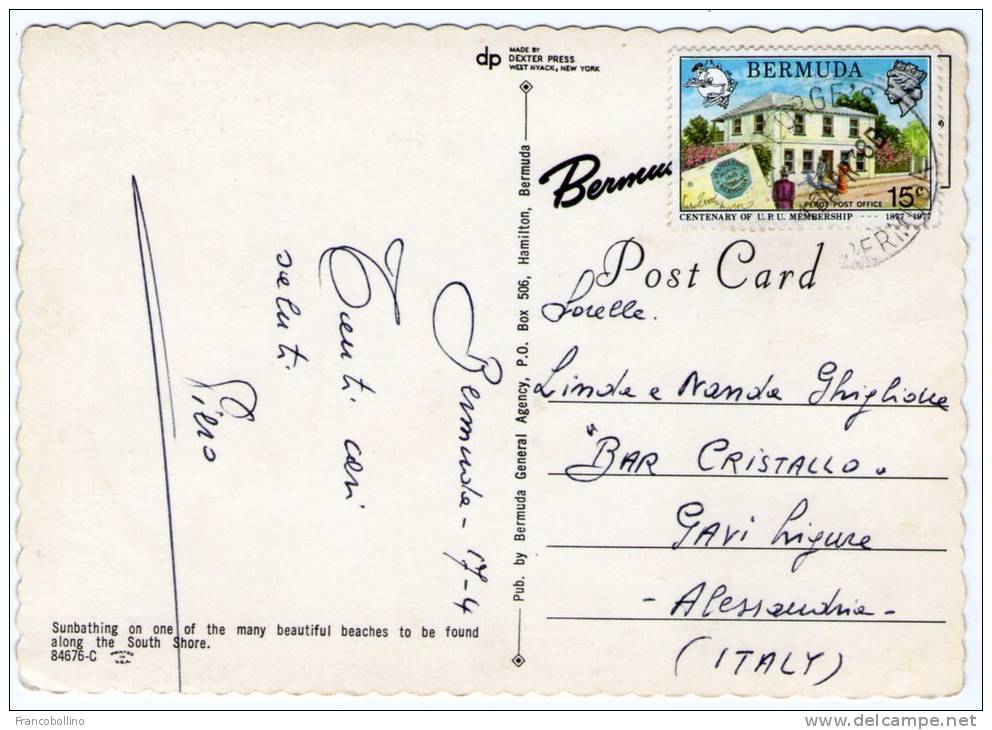 MADE BY
dp DEXTER PRESS
WEST NYACK, NEW YORK
BERMUDA
PEROT POST OFFICE 15c
CENTENARY OF U.P.U. MEMBERSHIP 1877-1977
ORGE'S
BERMUDA
Bermu
Post Card
Bermuda - 17-4
Tanti cari
saluti
Piero
Pub. by Bermuda General Agency, P.O. Box 506, Hamilton, Bermuda
Sorelle.
Linda e Nanda Ghiglione
"BAR CRISTALLO"
GAVi Ligure
- Alessandria -
(ITALY)
Sunbathing on one of the many beautiful beaches to be found
along the South Shore.
84676-C PRINTED IN U.S.A.
Francobollino
www.delcampe.net